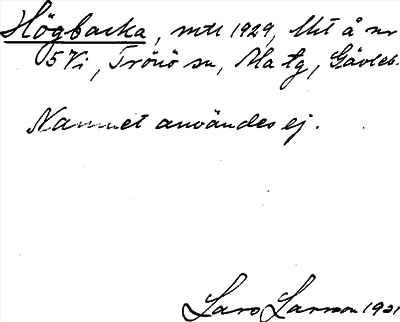 Högbacka, mtl 1929, Utt å nr
5 Vi, Trönö sn, Ma tg, Gävleb.
Namnet användes ej.
Lars Larsson 1931